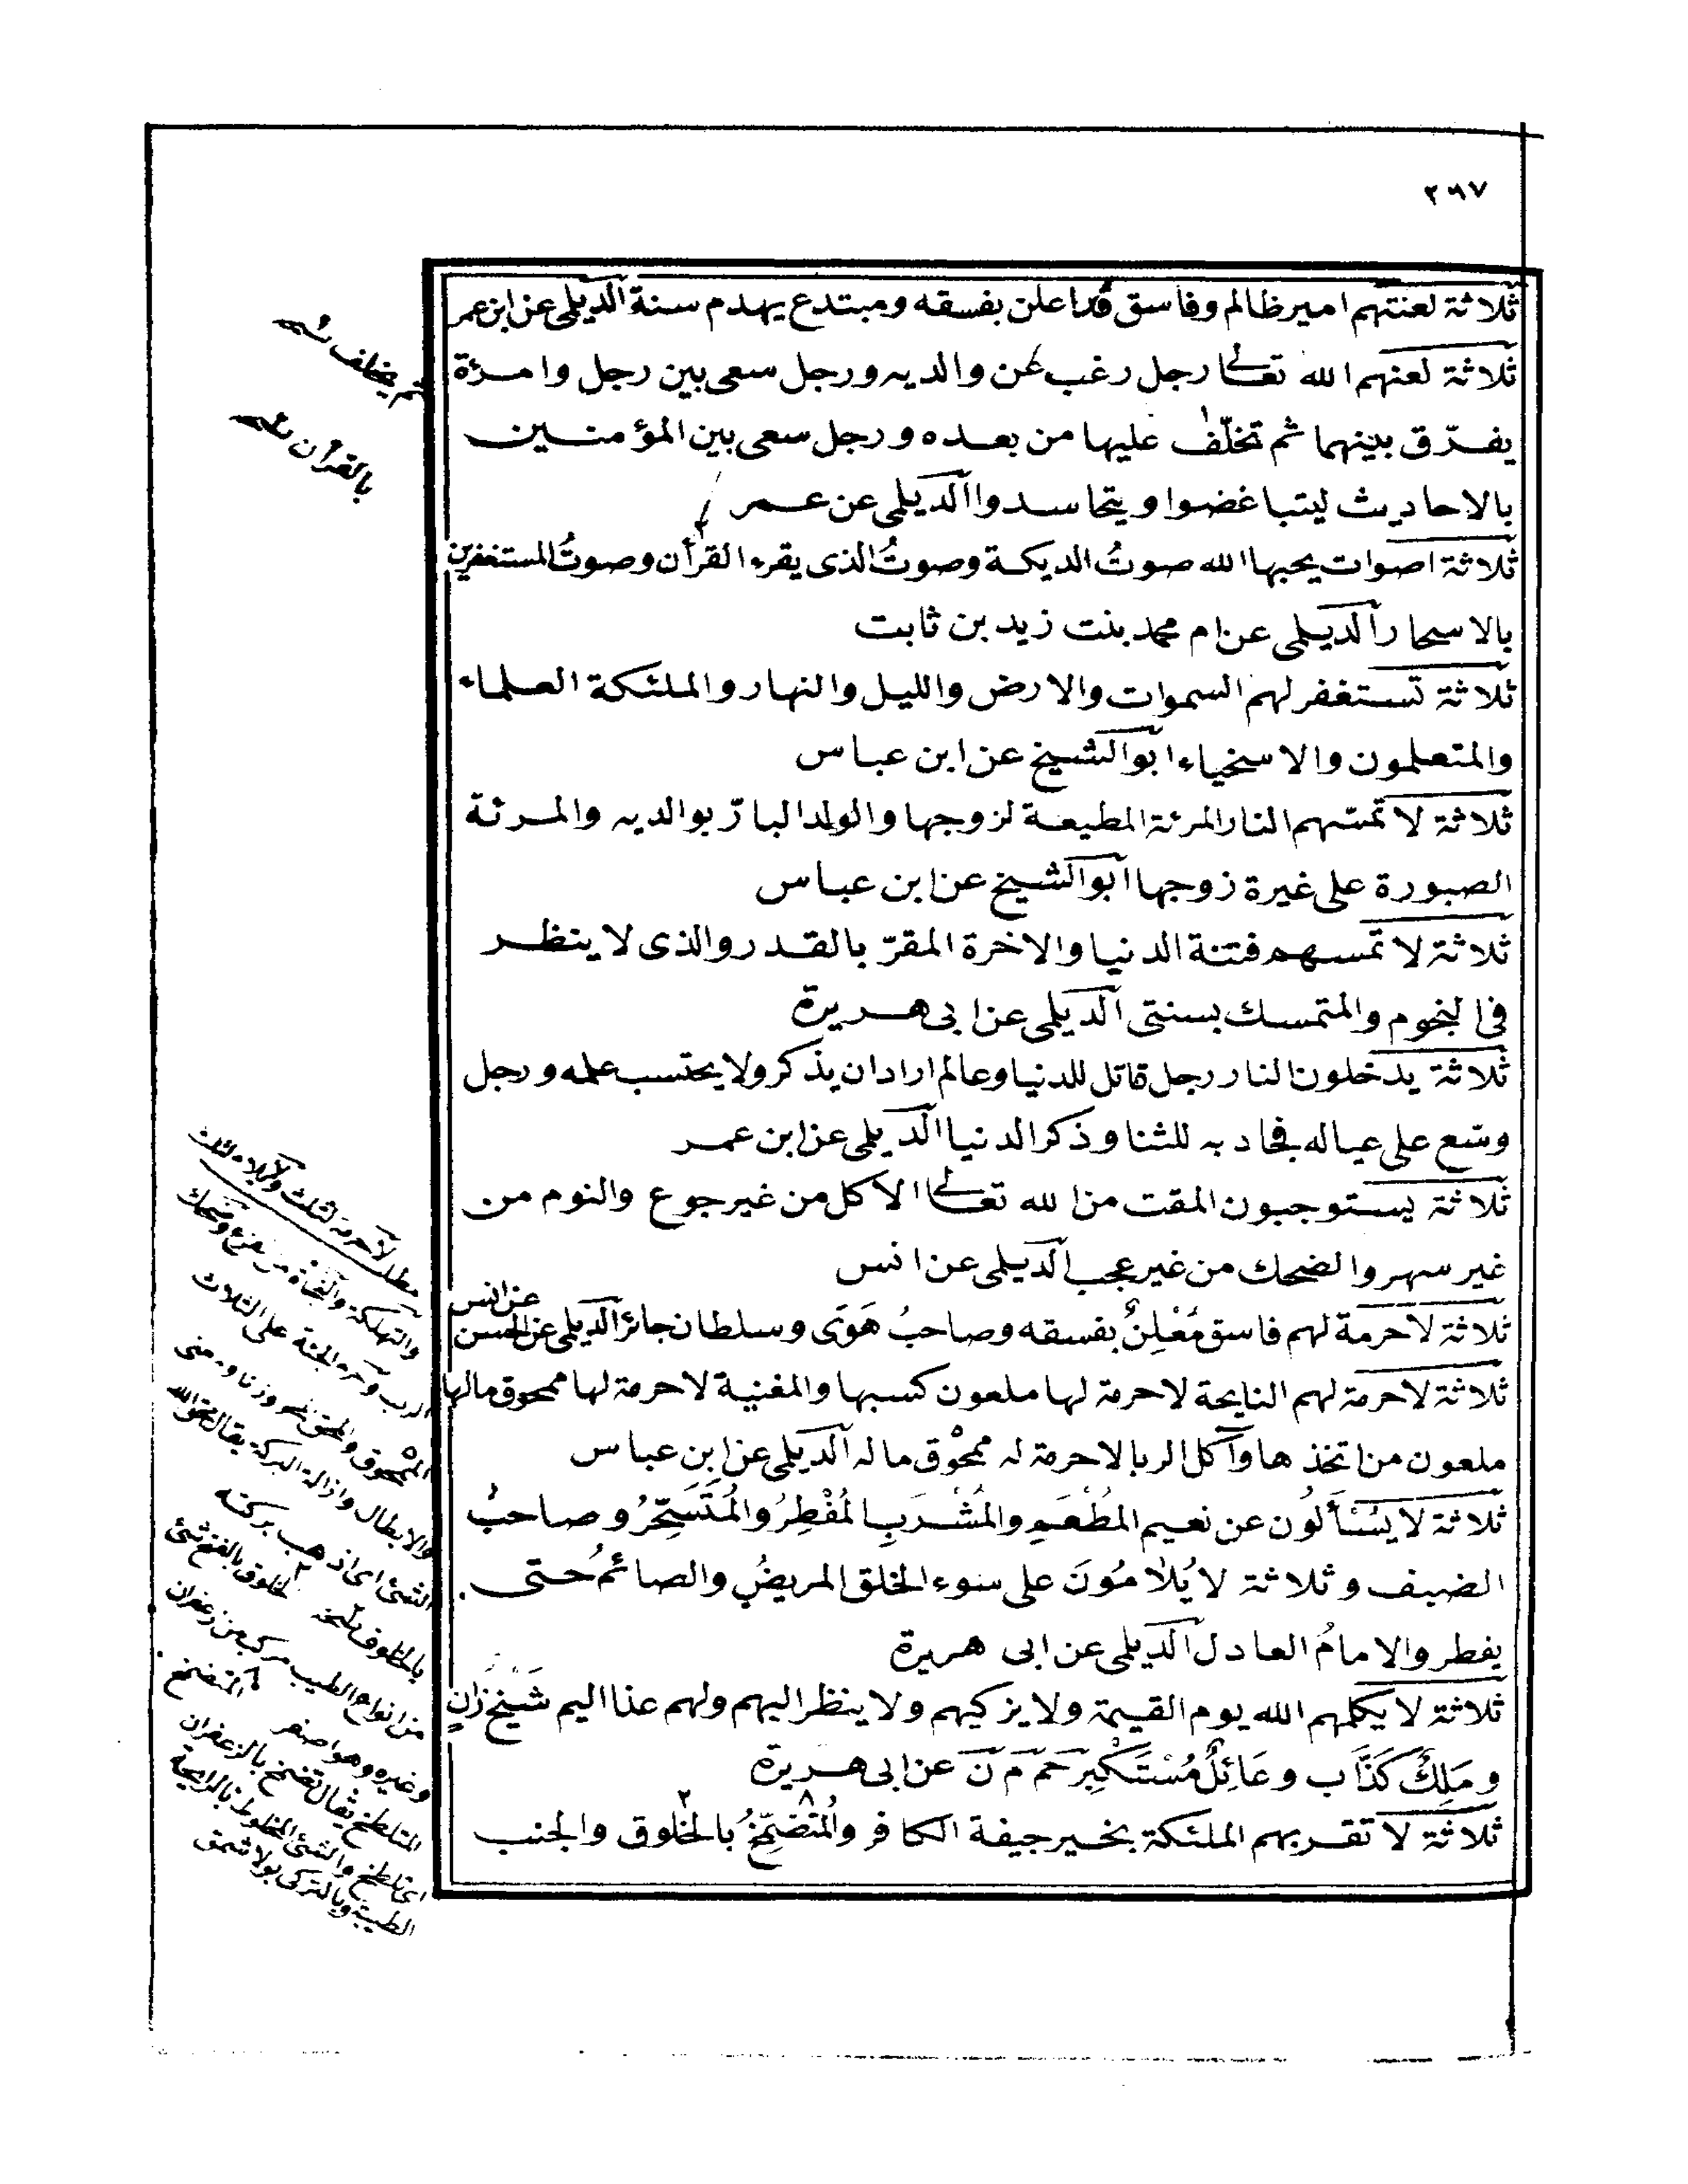 ٢٦٧
ثلاثة لعنتهم امير ظالم وفاسق قد اعلن بفسقه ومبتدع يهدم سنة الديلمى عن ابن عمر
ثلاثة لعنهم الله تعالى رجل رغب عن والديه ورجل سعى بين رجل وامرئة
يفرّق بينهما ثم تخلّف عليها من بعده ورجل سعى بين المؤمنين
بالاحاديث ليتباغضوا ويتحاسدوا الديلمى عن عمر
ثلاثة اصوات يحبها الله صوتُ الديكة وصوتُ الذى يقرء القرأن وصوتُ المستغفرين
بالاسحار الديلمى عن ام محمد بنت زيد بن ثابت
ثلاثة تستغفر لهم السموات والارض والليل والنهار والملئكة العلماء
والمتعلمون والاسخياء ابو الشيخ عن ابن عباس
ثلاثة لا تمسّهم النار المرئة المطيعة لزوجها والولد البارّ بوالديه والمرئة
الصبورة على غيرة زوجها ابو الشيخ عن ابن عباس
ثلاثة لا تمسهم فتنة الدنيا والاخرة المقرّ بالقدر والذى لا ينظر
فى النجوم والمتمسك بسنتى الديلمى عن ابى هريرة
ثلاثة يدخلون النار رجل قاتل للدنيا وعالم اراد ان يذكر ولا يحتسب علمه ورجل
وسّع على عياله فجاد به للثنا وذكر الدنيا الديلمى عن ابن عمر
ثلاثة يستوجبون المقت من الله تعالى الاكل من غير جوع والنوم من
غير سهر والضحك من غير عجب الديلمى عن انس
ثلاثة لا حرمة لهم فاسق مُعْلِنٌ بفسقه وصاحبُ هَوًى وسلطان جائر الديلمى عن الحسن
عن انس
ثلاثة لا حرمة لهم النايحة لا حرمة لها ملعون كسبها والمغنية لا حرمة لها ممحوق مالها
ملعون من اتخذها وآكل الربا لا حرمة له ممحوْق ماله الديلمى عن ابن عباس
ثلاثة لا يسْئَألُون عن نعيم المَطْعَمِ والمَشْرَبِ المُفْطِرُ والمُتَسَحِّرُ وصاحبُ
الضيف وثلاثة لا يُلامُونَ على سوء الخلق المريضُ والصائمُ حتى
يفطر والامامُ العادل الديلمى عن ابى هريرة
ثلاثة لا يكلمهم الله يوم القيمة ولا يزكيهم ولا ينظر اليهم ولهم عذا اليم شَيْخٌ زَانٍ
ومَلِكٌ كَذَّاب وعَائِلٌ مُسْتَكْبِر حم م ن عن ابى هريرة
ثلاثة لا تقربهم الملئكة بخير جيفة الكافر والمُتَضَمِّخُ بالخلوق والجنب
ثم يخلف نسخه
بالقرأن نسخه
والابطال وازالة البركة يقال محق الله
الشئ اى اذهب بركته
من انواع الطيب مركب من زعفران
وغيره وهو اصفر المتضمخ
المتلطخ يقال تضمخ بالزعفران
اى تلطخ والشئ المخلوط بالرايحة
الطيبة وبالتركى بولاشمق